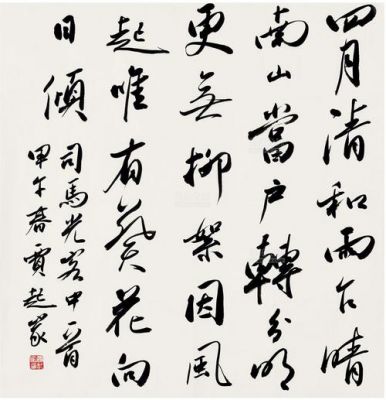 四月清和雨乍晴
南山當户轉分明
更無柳絮因風
起唯有葵花向
日傾
司馬光客中
甲午春賈起家